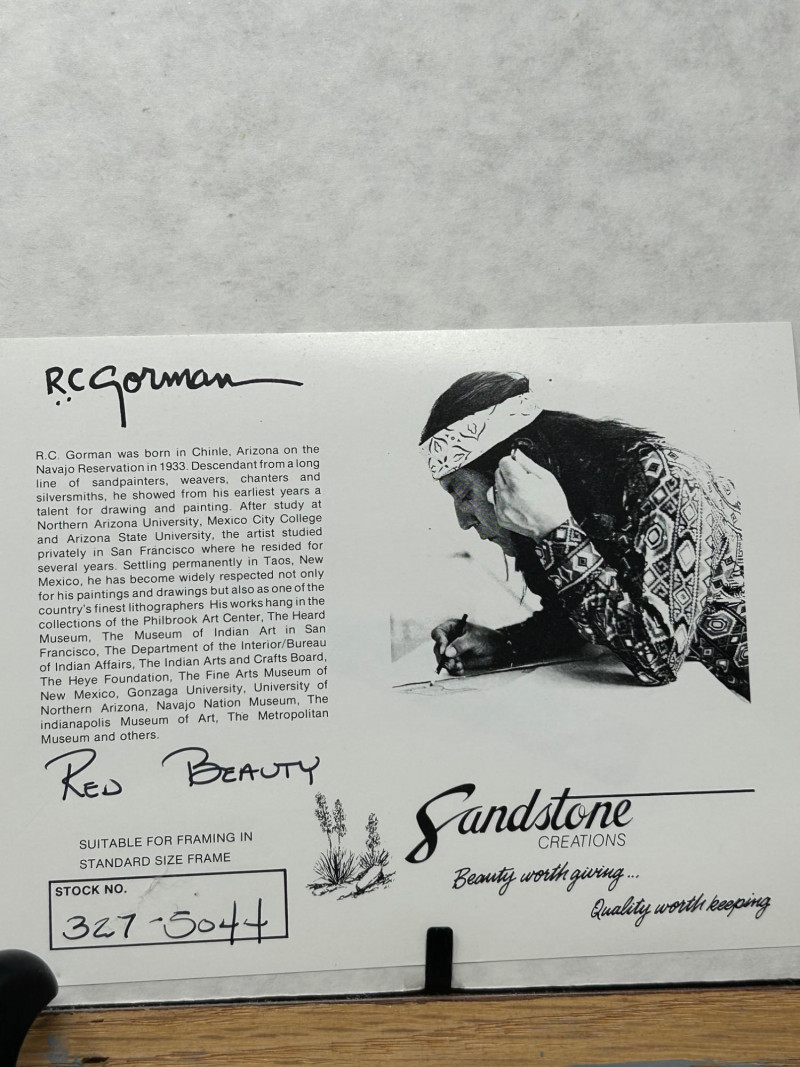 R.C. Gorman
R.C. Gorman was born in Chinle, Arizona on the
Navajo Reservation in 1933. Descendant from a long
line of sandpainters, weavers, chanters and
silversmiths, he showed from his earliest years a
talent for drawing and painting. After study at
Northern Arizona University, Mexico City College
and Arizona State University, the artist studied
privately in San Francisco where he resided for
several years. Settling permanently in Taos, New
Mexico, he has become widely respected not only
for his paintings and drawings but also as one of the
country's finest lithographers. His works hang in the
collections of the Philbrook Art Center, The Heard
Museum, The Museum of Indian Art in San
Francisco, The Department of the Interior/Bureau
of Indian Affairs, The Indian Arts and Crafts Board,
The Heye Foundation, The Fine Arts Museum of
New Mexico, Gonzaga University, University of
Northern Arizona, Navajo Nation Museum, The
indianapolis Museum of Art, The Metropolitan
Museum and others.
RED BEAUTY
SUITABLE FOR FRAMING IN
STANDARD SIZE FRAME
STOCK NO.
327-5044
Sandstone
CREATIONS
Beauty worth giving...
Quality worth keeping